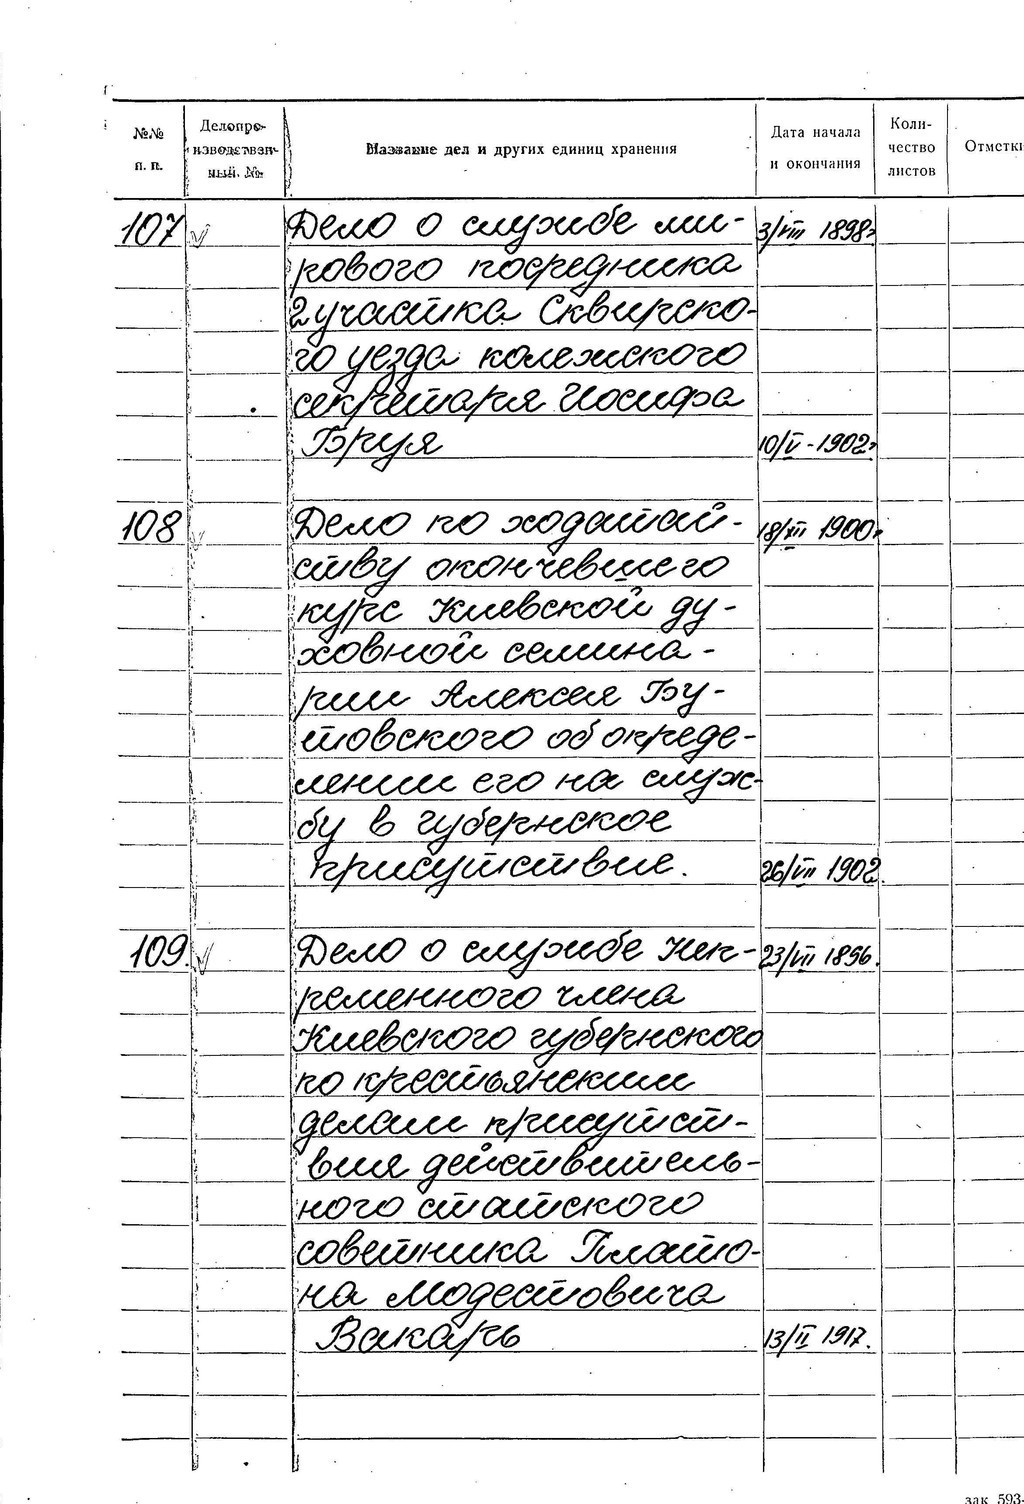 №№ п. п. Делопроизводственный. № Название дел и других единиц хранения Дата начала и окончания Коли-чество листов Отметки
107 Дело о службе ми- 3/VIII 1898г
рового посредника
2 участка Сквирско-
го уезда колежского
секретаря Иосифа
Бруя 10/V-1902г
108 Дело по ходатай- 18/XII 1900г
ству окончевшего
курс Киевской ду-
ховной семина-
рии Алексея Бу-
товского об опреде-
лении его на служ-
бу в губернское
присутствие. 26/VII 1902.
109. Дело о службе неп- 23/VII 1896.
ременного члена
Киевского губернского
по крестьянским
делам присутст-
вия действитель-
ного статского
советника Плато-
на Модестовича
Вакарь 13/II 1917.
зак. 593-